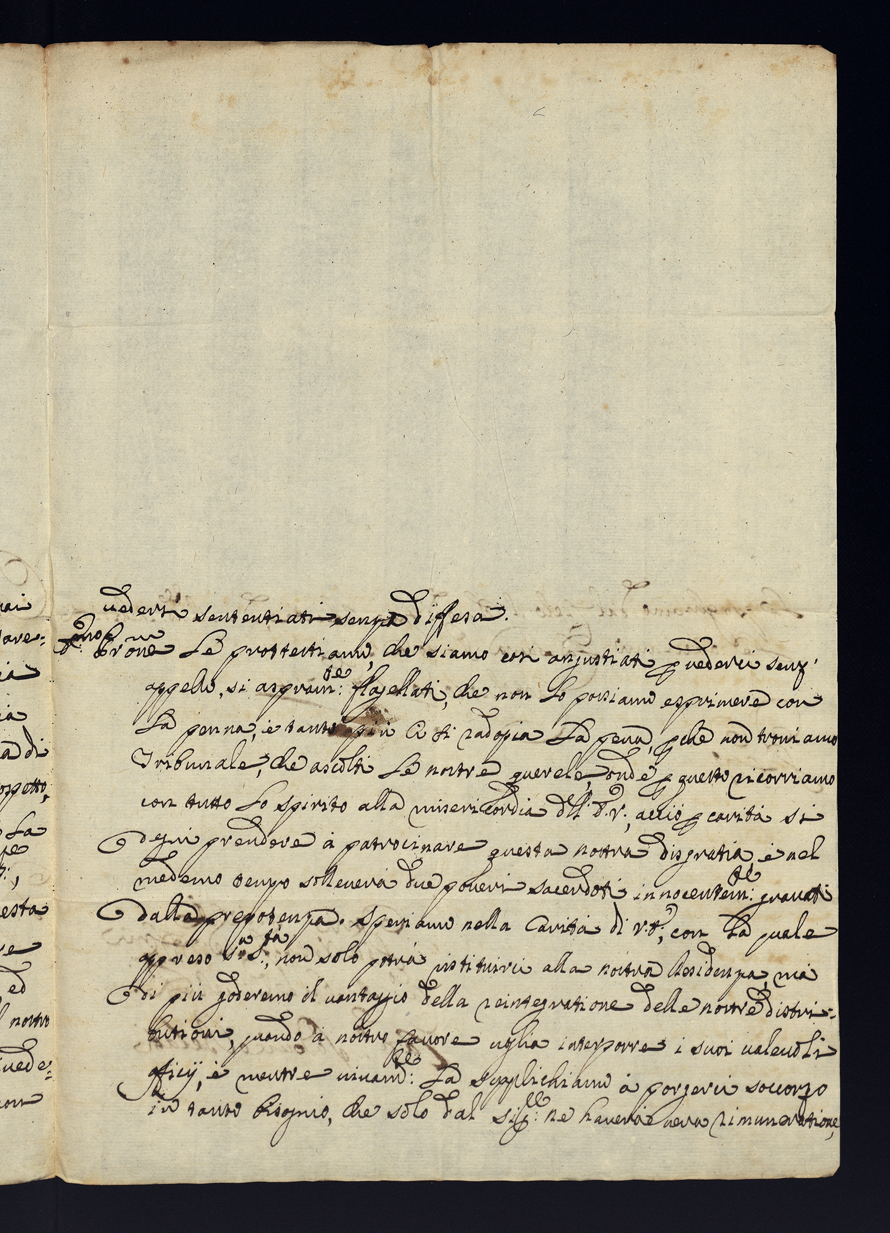 vederci sententiati senza diffesa.
P̄rone Le prottestiamo, che siamo così anjustiati p vederci senz'
appello, si aspram:te flagellati, che non Lo possiamo esprimere con
La penna, e tanto più Ci si radopia La pena, pche non troviamo
Tribunale, che ascolti Le nostre querele, onde p questo ricorriamo
con tutto Lo spirito alla misericordia acciò p carità si
degni prendere à patrocinare questa nostra disgratia, e nel
medemo tempo sollevera due poveri sacerdoti innocentem:te gravati
dalle prepotenza. Speriamo nella Carità di con La quale
appreso S:a S:tà, non solo potrà ristituirci alla nostra Residenza, mà
di più goderemo il vantaggio della reintegratione delle nostre distri=
butioni, quando à nostro favore voglia interporre i suoi valevoli
officij, e mentre vivam:te La Supplichiamo à porgerci soccorso
in tanto bisognio, che solo dal sig:re ne haverà vera rimuneratione,
vai
tare=
ia
a di
ospetto,
La
esta
re
ed
l nostro
vede=
non